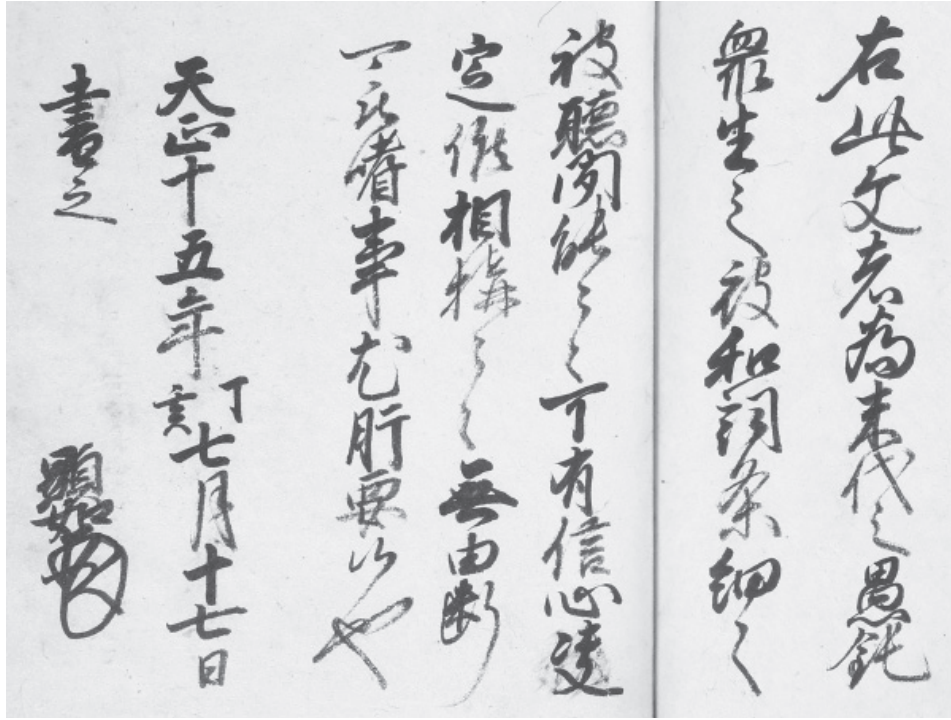 右此文者為末代之愚鈍
衆生之被和詞条細々
被聴聞能々々可有信心決
定候相構々々無由断
可被嗜事尤肝要候也
天正十五年丁亥七月十七日
書之 顕如